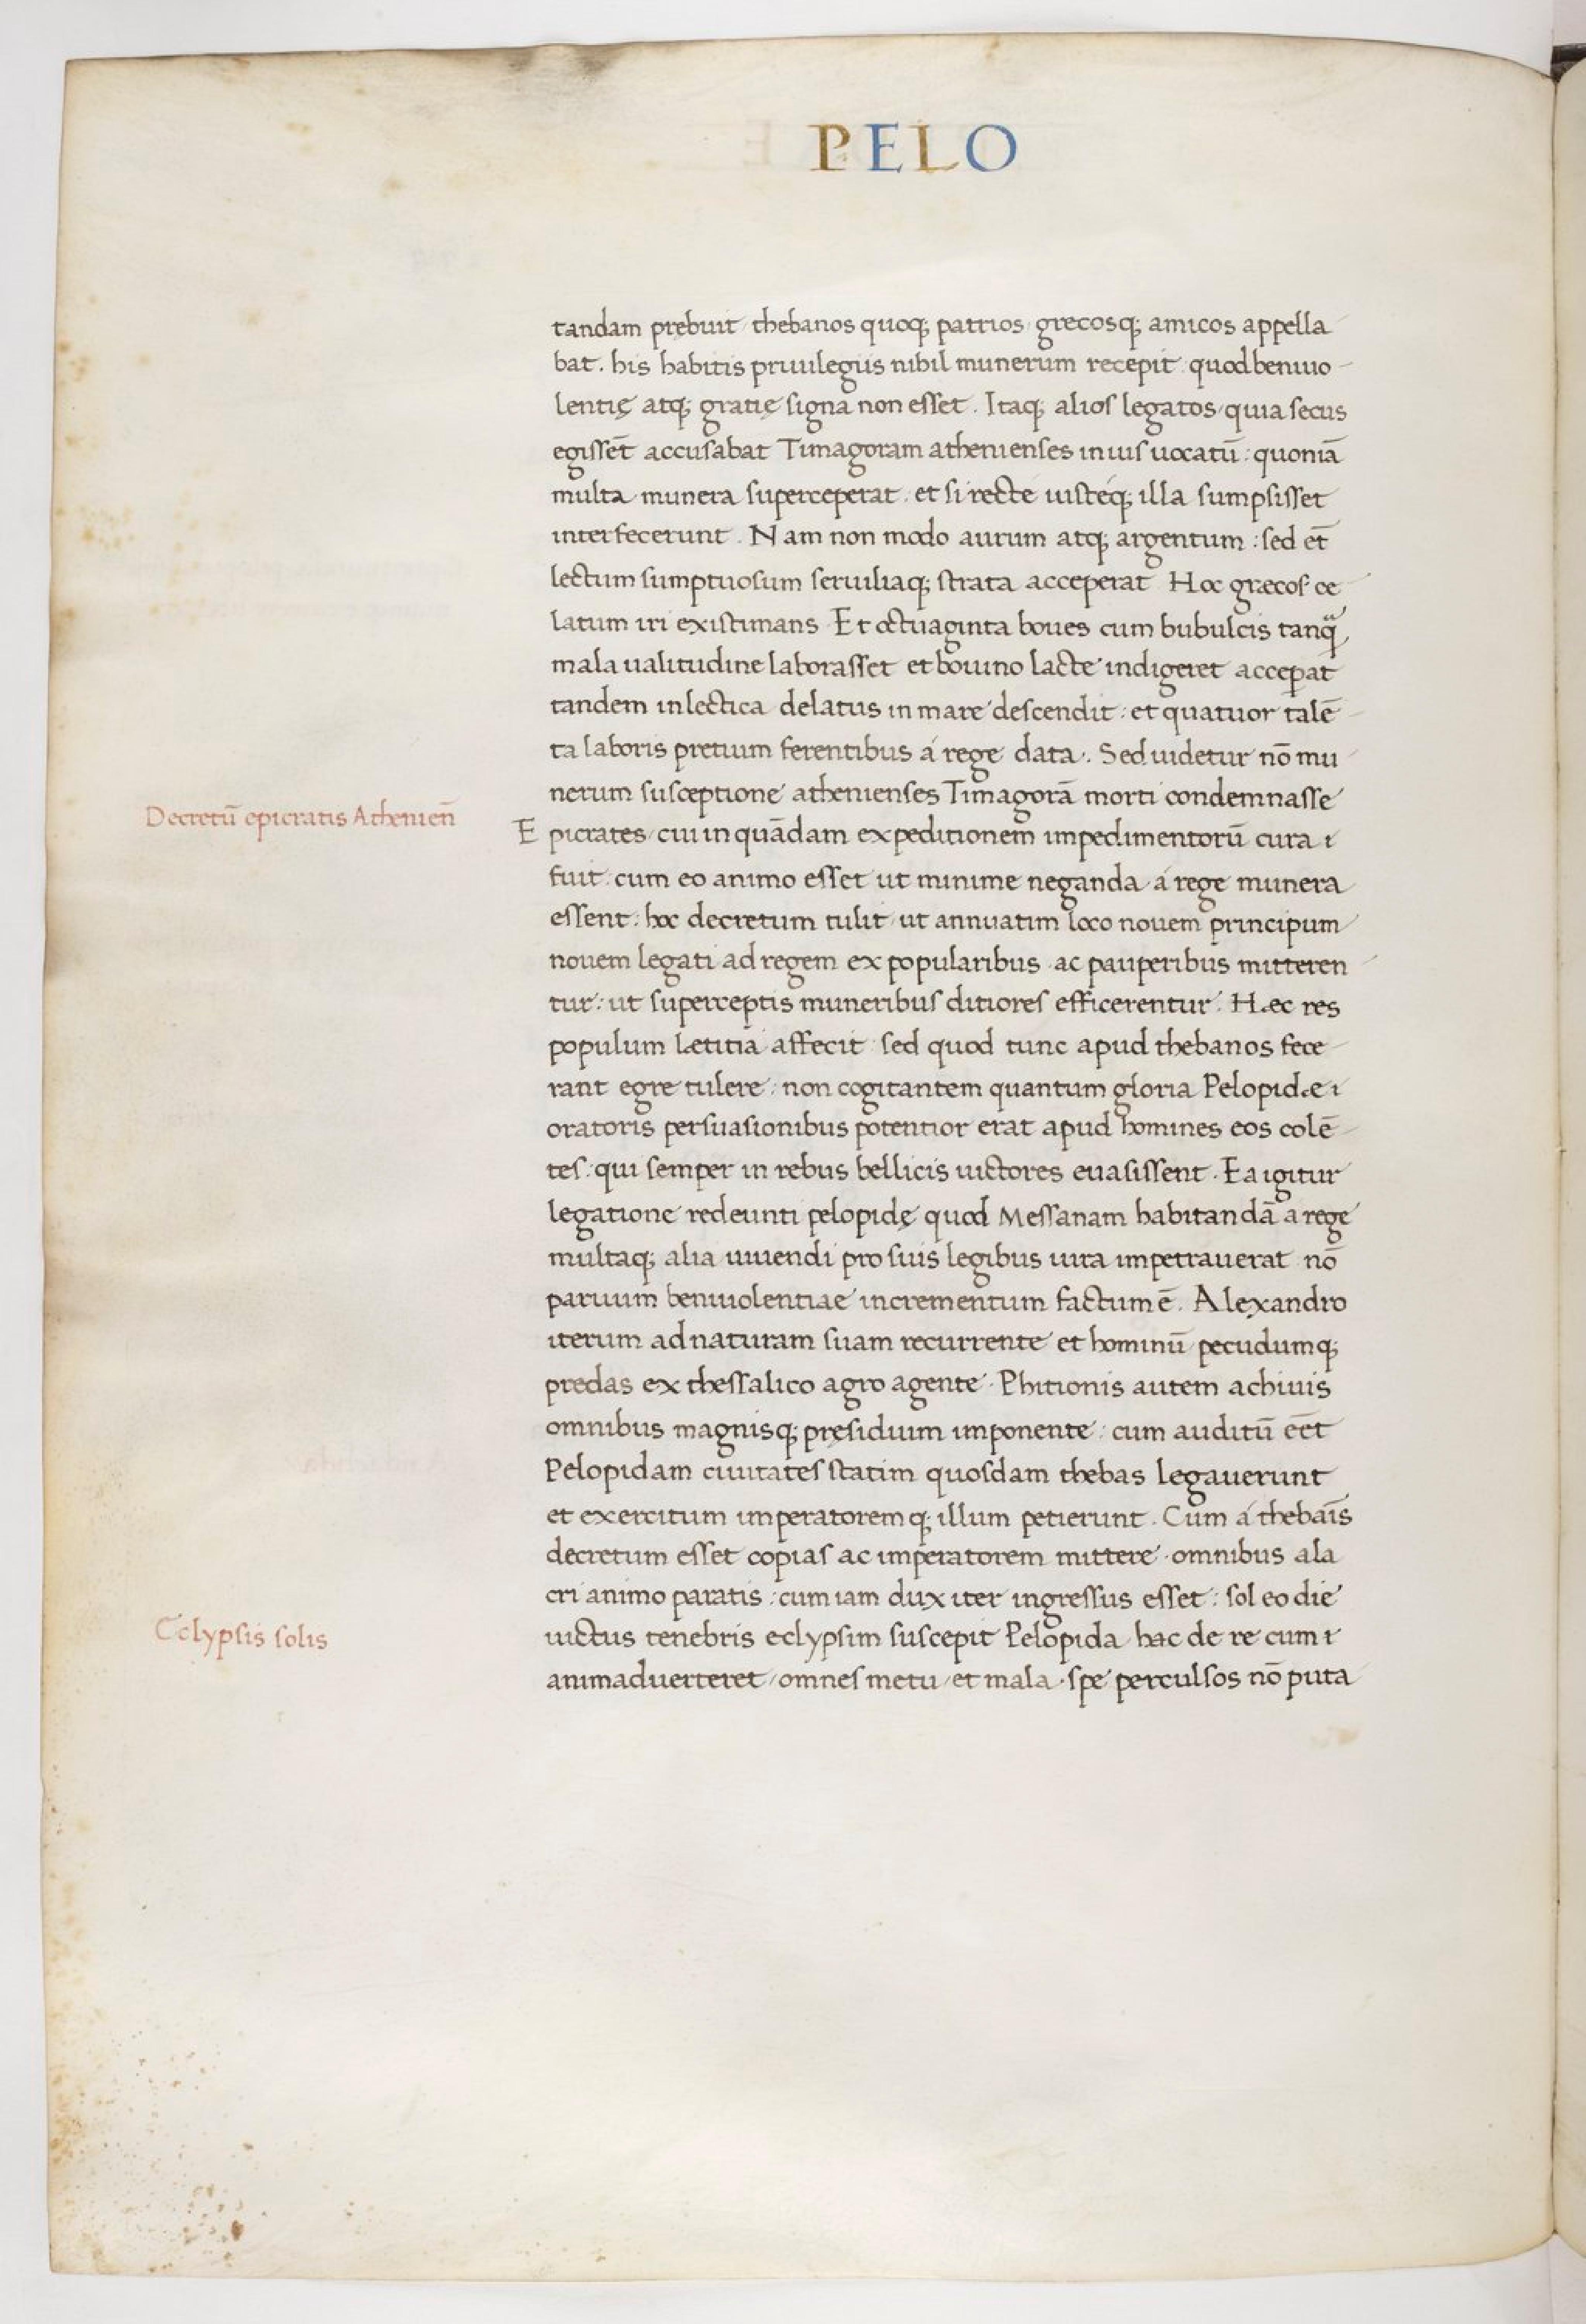 PELO
tandam prębuit thebanos quoq; patrios grecosq; amicos appella
bat. his habitis priuilegiis nihil munerum recepit quod beniuo-
lentię atq; gratię signa non esset. Itaq; alios legatos quia secus
egissēt accusabat Timagoram athenienses in ius uocatū: quoniā
multa munera superceperat. et si recte iustéq; illa sumpsisset
interfecerunt. Nam non modo aurum atq; argentum: sed et̄
lectum sumptuosum seruiliaq; strata acceperat Hoc græcos ce
latum iri existimans Et octuaginta boues cum bubulcis tanq̃
mala ualitudine laborasset et bouino lacte indigeret acceperat
tandem in lectica delatus in mare descendit: et quatuor talē
ta laboris pretium ferentibus á rege data. Sed uidetur nō mu
nerum susceptione athenienses Timagorā morti condemnasse
Decretū epicratis Athenien̄
Epicrates cui in quādam expeditionem impedimentorū cura
fuit cum eo animo esset ut minime neganda á rege munera
essent: hoc decretum tulit ut annuatim loco nouem principum
nouem legati ad regem ex popularibus ac pauperibus mitteren
tur: ut superceptis muneribus ditiores efficerentur. Hæc res
populum lætitia affecit sed quod tunc apud thebanos fece-
rant egre tulere: non cogitantem quantum gloria Pelopidæ
oratoris persuasionibus potentior erat apud homines eos colē-
tes: qui semper in rebus bellicis uictores euasissent. Ea igitur
legatione redeunti pelopidę quod Messanam habitandā a rege
multaq; alia uiuendi pro suis legibus iura impetrauerat nō
paruum beniuolentiae incrementum factum ē. Alexandro
iterum ad naturam suam recurrente et hominū pecudumq;
predas ex thessalico agro agente. Phitionis autem achiuis
omnibus magnisq; pręsidium imponente: cum auditū eēt
Pelopidam ciuitates statim quosdam thebas legauerunt
et exercitum imperatoremq; illum petierunt. Cum á thebaīs
decretum esset copias ac imperatorem mittere omnibus ala
cri animo paratis: cum iam dux iter ingressus esset: sol eo die
Eclypsis solis
uictus tenebris eclypsim suscepit Pelopida hac de re cum
animaduerteret omnes metu et mala spe perculsos nō puta